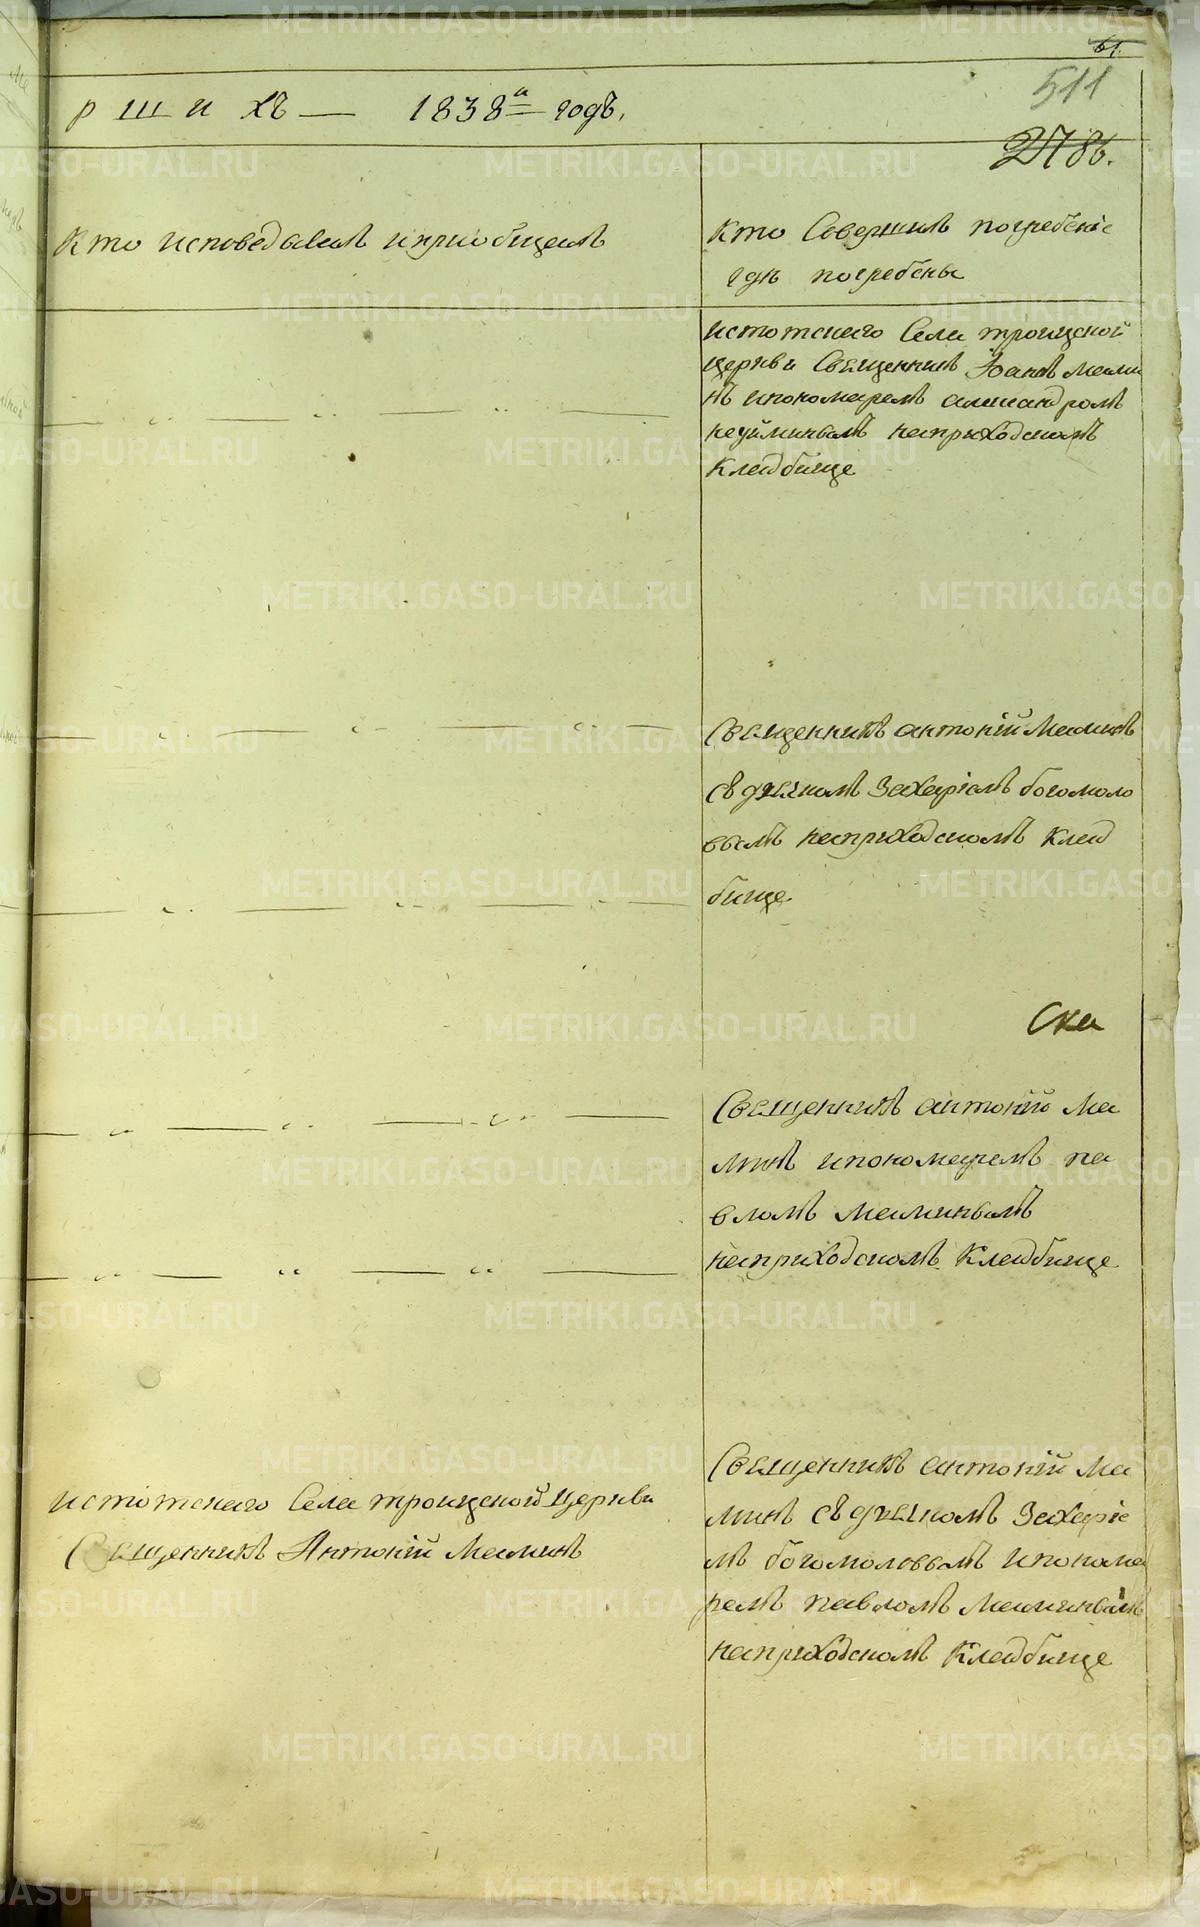 61.
511
р ш и хъ — 1838а годъ.
2786.
Кто исповедывалъ иприобщалъ
Кто Совершилъ погребение
гдѣ погребены
истотскаго Села троицкой
церкви Священникъ Иоаннъ Мами
нъ ипономаремъ александромъ
неуйминымъ наприходскомъ
Кладбище
Священникъ антоній Маминъ
съ дьячкомъ Захаріемъ богомоло
вымъ наприходскомъ Клад
бище
Ска
Священникъ антоній Ма
минъ ипономаремъ па
вломъ маминымъ
наприходскомъ Кладбище
истотскаго Села троицкой Церкви
Священникъ Антоній Маминъ
Священникъ антоній Ма
минъ съ дьячкомъ Захаріе
мъ богомоловымъ ипонома
ремъ павломъ маминымъ
наприходскомъ Кладбище
METRIKI.GASO-URAL.RU